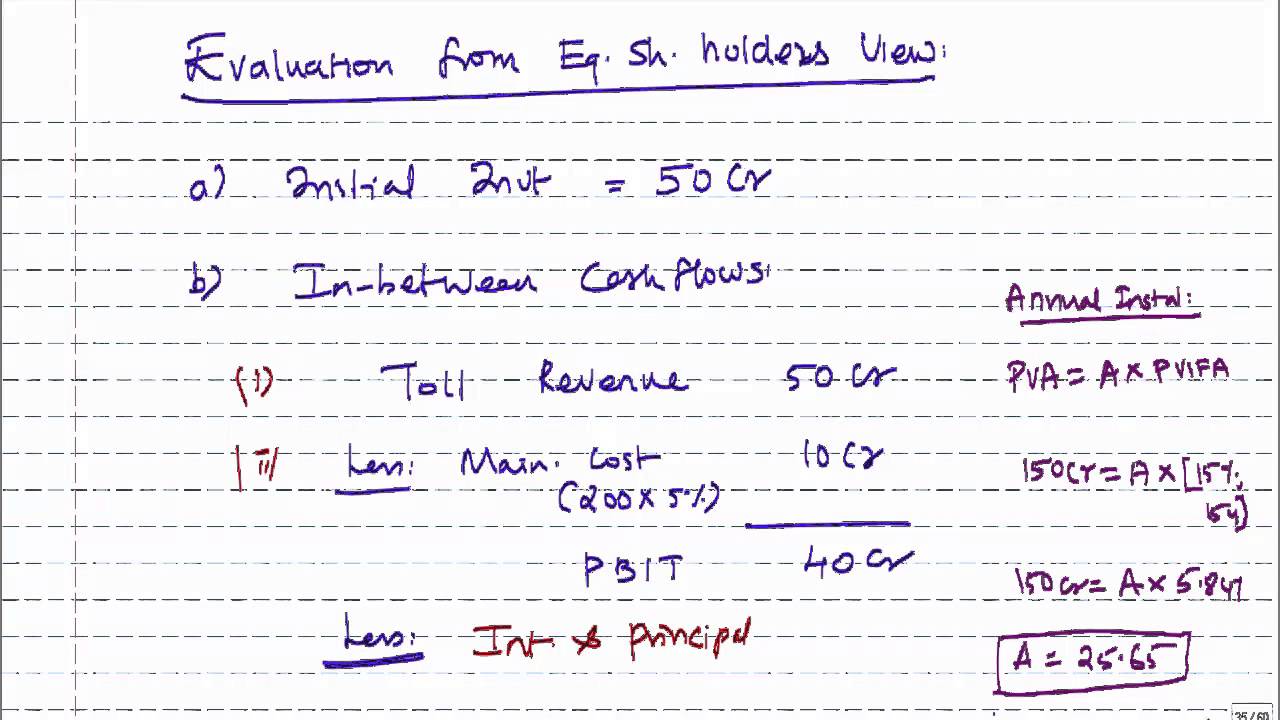 Evaluation from Eq. Sh. holders View:
a) Initial Invt = 50 Cr
b) In-between Cashflows:
(i) Toll Revenue 50 Cr
(ii) Less: Main. Cost 10 Cr
(200 x 5%)
PBIT 40 Cr
Less: Int & principal
Annual Instal:
PVA = A x PVIFA
150 Cr = A x [15%,
15y]
150 Cr = A x 5.847
A = 25.65
35 / 60